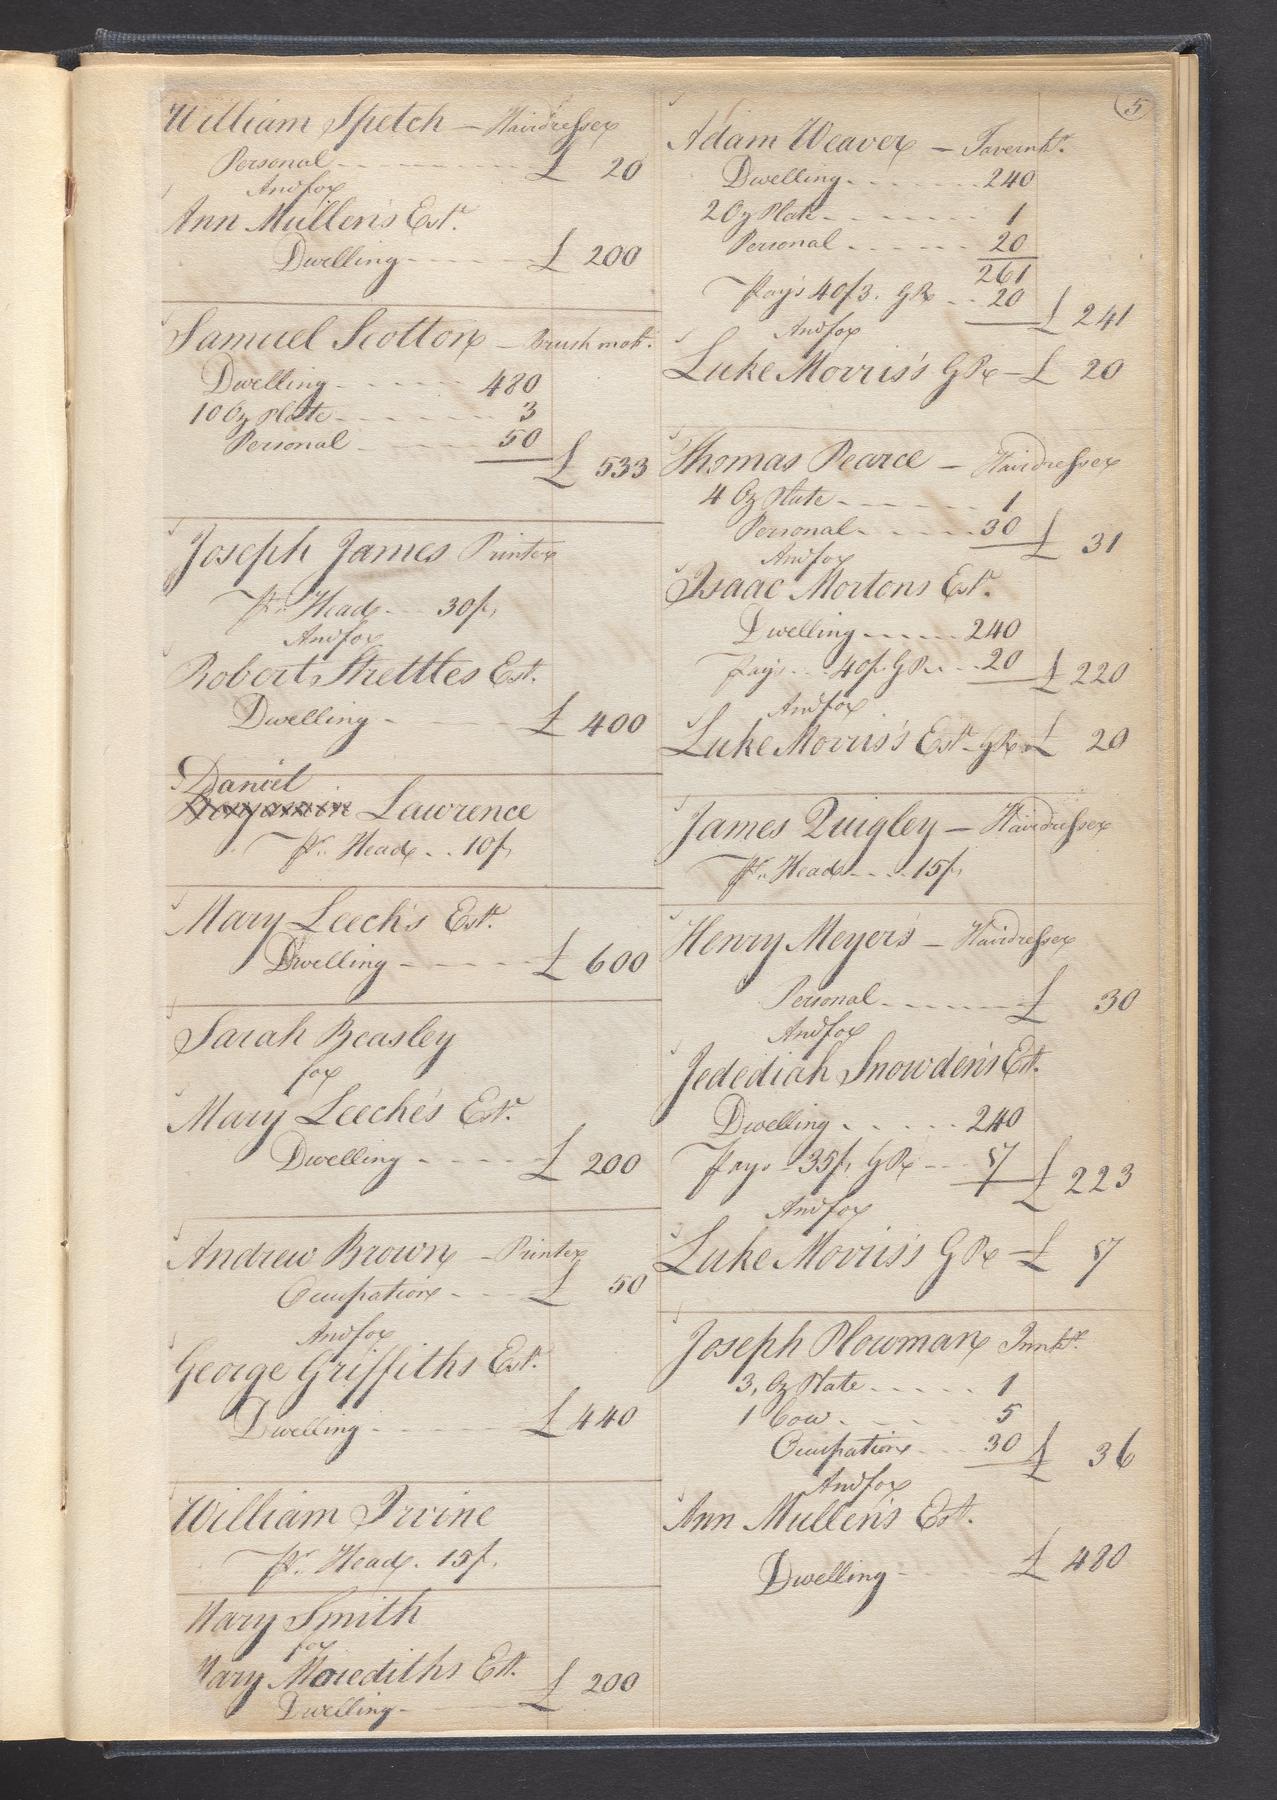 William Spetch — Hairdresser
Personal £ 20
And for
Ann Mullen's Estt.
Dwelling £ 200
Samuel Scotton — Brush makr.
Dwelling 480
10 Oz Plate 3
Personal 50
£ 533
Joseph James Printer
pr. Head 30/,
And for
Robert Strettles Est.
Dwelling £ 400
Daniel
Benjamin Lawrence
pr. Head 10/,
Mary Leech's Estt.
Dwelling £ 600
Sarah Beasley
for
Mary Leeche's Estt.
Dwelling £ 200
Andrew Brown — Printer
Occupation £ 50
And for
George Griffiths Estt.
Dwelling £ 440
William Irvine
pr. Head. 15/,
Mary Smith
for
Mary Merediths Estt.
Dwelling £ 200
5
Adam Weaver — Tavernkr.
Dwelling 240
2 Oz Plate 1
Personal 20
261
Pay's 40/3. G Rt 20 £ 241
And for
Luke Morris's G Rt — £ 20
Thomas Pearce — Hairdresser
4 Oz Plate 1
Personal 30 £ 31
And for
Isaac Mortons Estt.
Dwelling 240
Pay's 40/. G Rt 20 £ 220
And for
Luke Morris's Estt. G Rt £ 20
James Quigley — Hairdresser
pr. Head 15/,
Henry Meyer's — Hairdresser
Personal £ 30
And for
Jedediah Snowden's Estt.
Dwelling 240
Pays 35/, G Rt 17 £ 223
And for
Luke Morris's G Rt — £ 17
Joseph Plowman Innkr.
3, Oz Plate 1
1 Cow 5
Occupation 30 £ 36
And for
Ann Mullen's Estt.
Dwelling £ 480